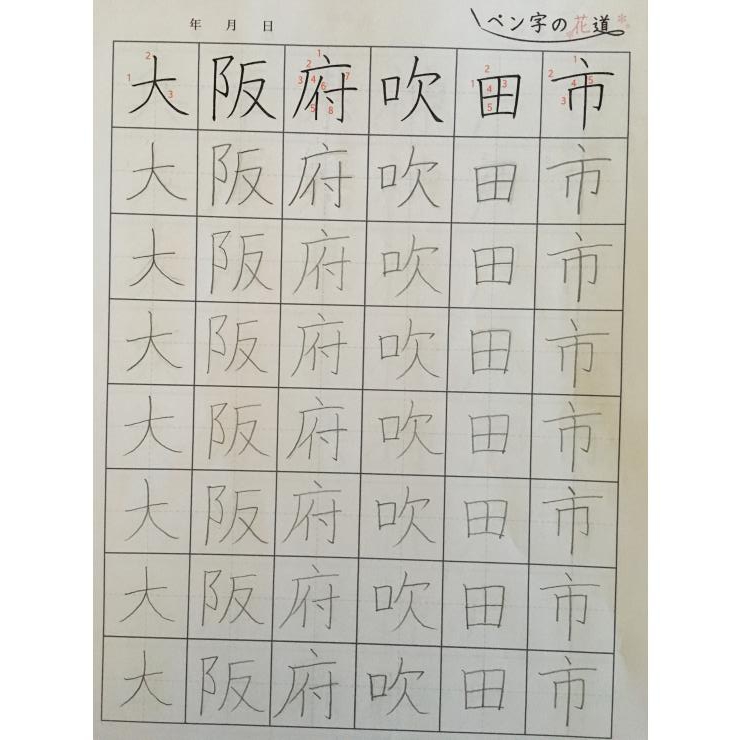 年 月 日 ペン字の花道
大阪府吹田市
大阪府吹田市
大阪府吹田市
大阪府吹田市
大阪府吹田市
大阪府吹田市
大阪府吹田市
大阪府吹田市